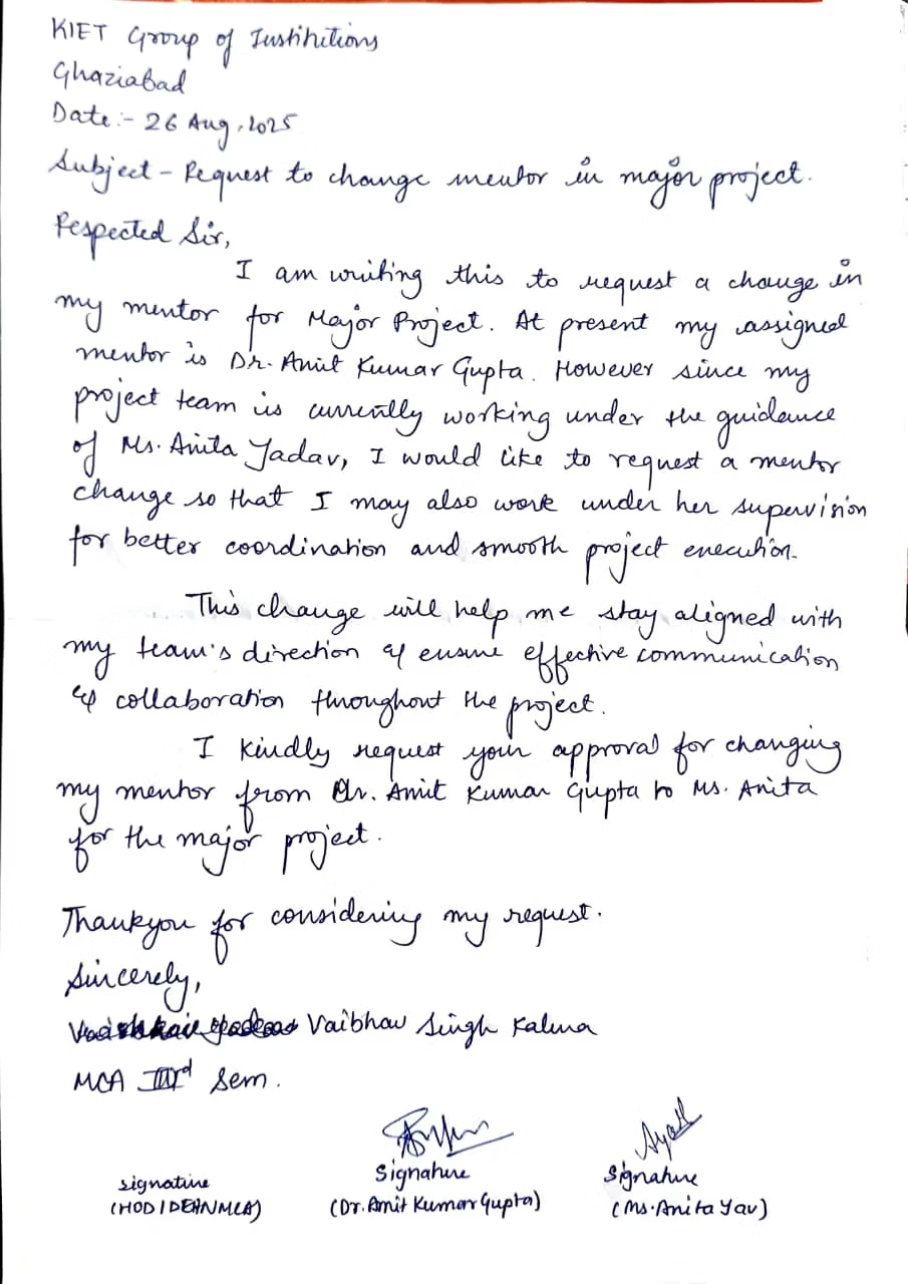 KIET Group of Institutions
Ghaziabad
Date:- 26 Aug, 2025
Subject - Request to change mentor in major project.
Respected Sir,
I am writing this to request a change in
my mentor for Major Project. At present my assigned
mentor is Dr. Amit Kumar Gupta. However since my
project team is currently working under the guidance
of Ms. Anita Yadav, I would like to request a mentor
change so that I may also work under her supervision
for better coordination and smooth project execution.
This change will help me stay aligned with
my team's direction & ensure effective communication
& collaboration throughout the project.
I kindly request your approval for changing
my mentor from Dr. Amit Kumar Gupta to Ms. Anita
for the major project.
Thankyou for considering my request.
Sincerely,
Vaibhav Singh Kalura
MCA IIIrd Sem.
Signature Signature Signature
(HOD/DEAN MCA) (Dr. Amit Kumar Gupta) (Ms. Anita Yav)